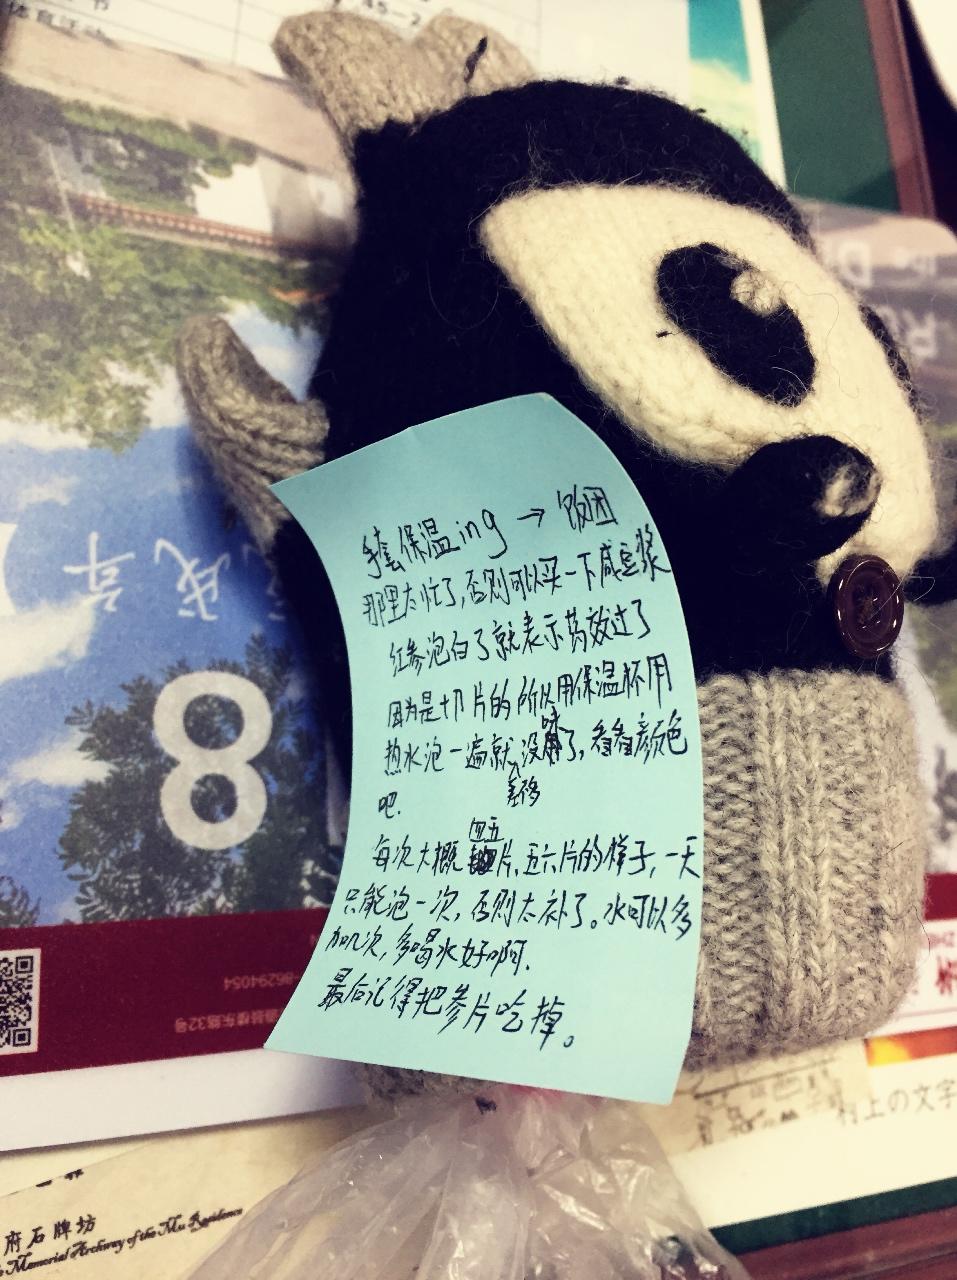 手套保温ing → 饭团
那里太忙了,否则可以买一下咸豆浆
红参泡白了就表示药效过了
因为是切片的所以用保温杯用
热水泡一遍就差多没味了,看看颜色
吧.
每次大概四五片,五六片的样子,一天
只能泡一次,否则太补了。水可以多
加几次,多喝水好啊.
最后记得把参片吃掉。
8
86294054
楼东路32号
村上の文字
府石牌坊
Memorial Archway of the Mu Residence